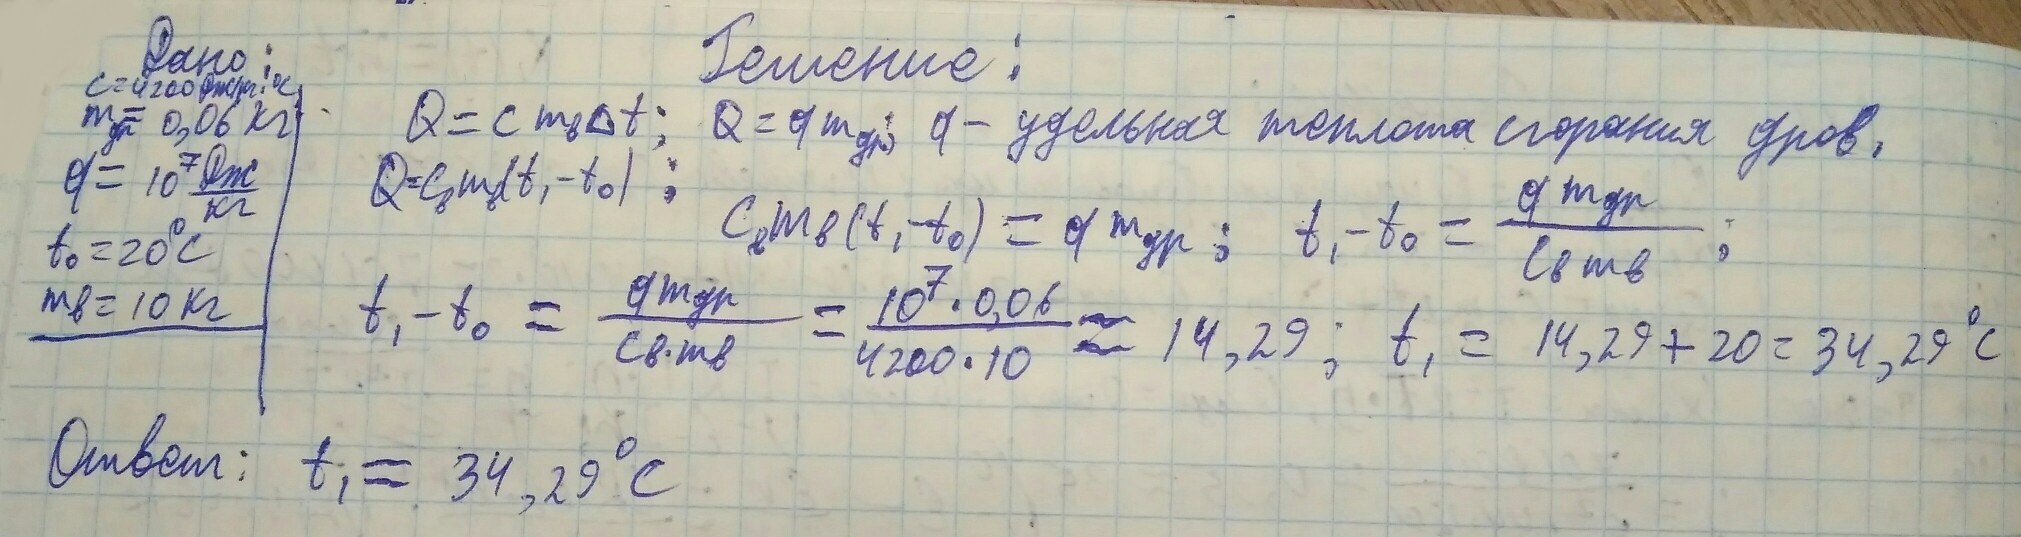 Дано:
c=4200 Дж/кг·°C
mдр= 0,06 кг
q= 10⁷ Дж/кг
t₀=20°C
mв=10 кг
Решение:
Q=c mв Δt; Q=q mдр; q- удельная теплота сгорания дров.
Q=cвmв(t₁-t₀);
cвmв(t₁-t₀)=q mдр; t₁-t₀= q mдр / cв mв;
t₁-t₀ = q mдр / cв·mв = 10⁷·0,06 / 4200·10 ≈ 14,29; t₁ = 14,29+20=34,29°C
Ответ: t₁= 34,29°C